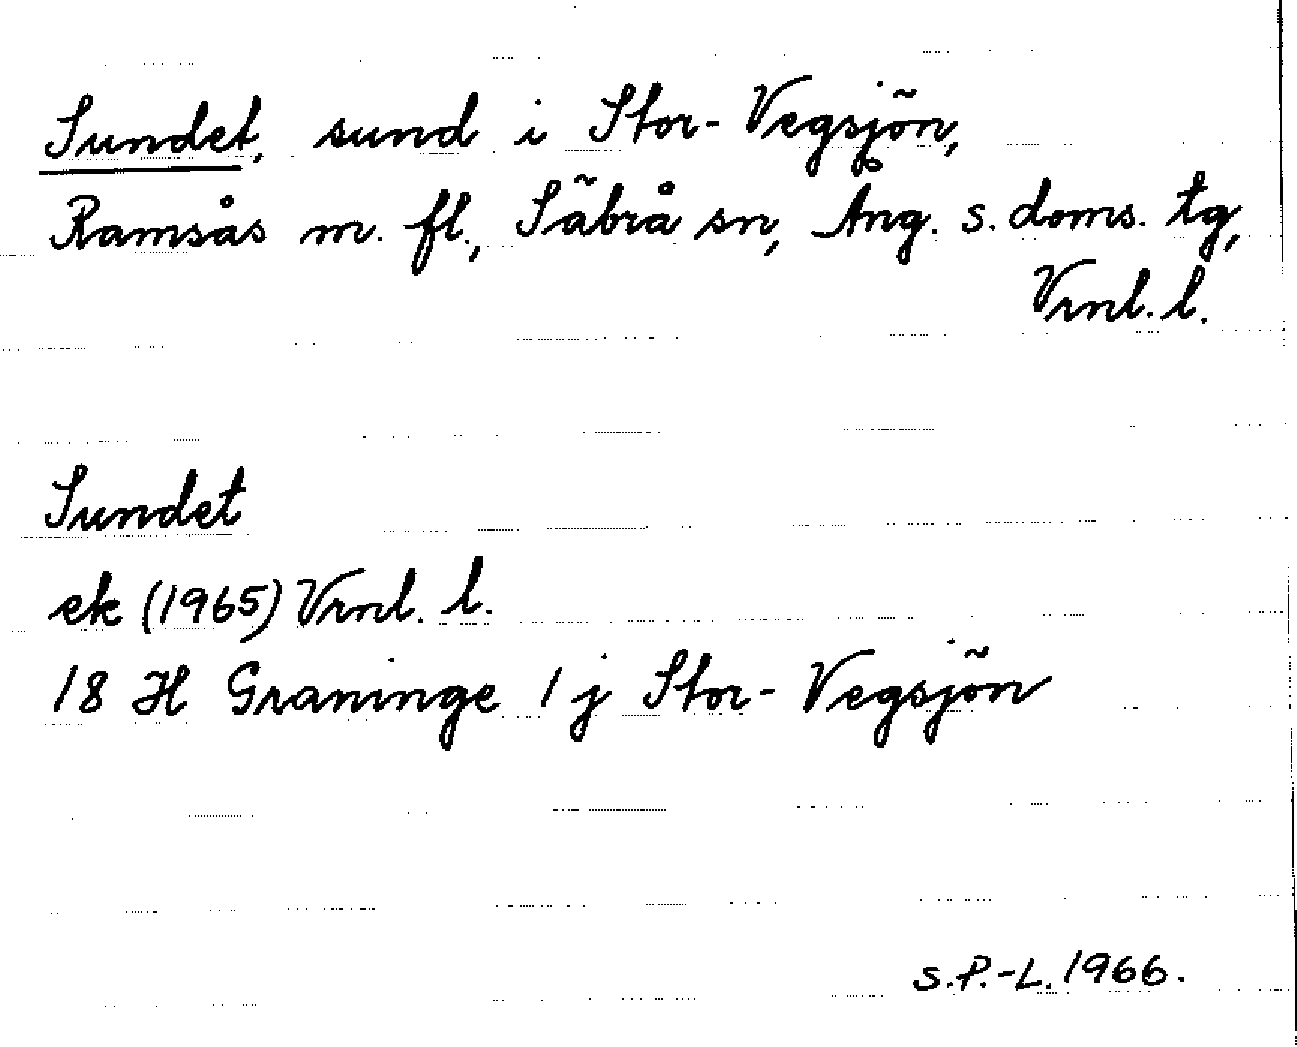 Sundet, sund i Stor-Vegsjön,
Ramsås m. fl., Säbrå sn, Ång. s. doms. tg,
Vrnl. l.
Sundet
ek (1965) Vrnl. l.
18 H Graninge 1 j Stor-Vegsjön
S.P.-L. 1966.